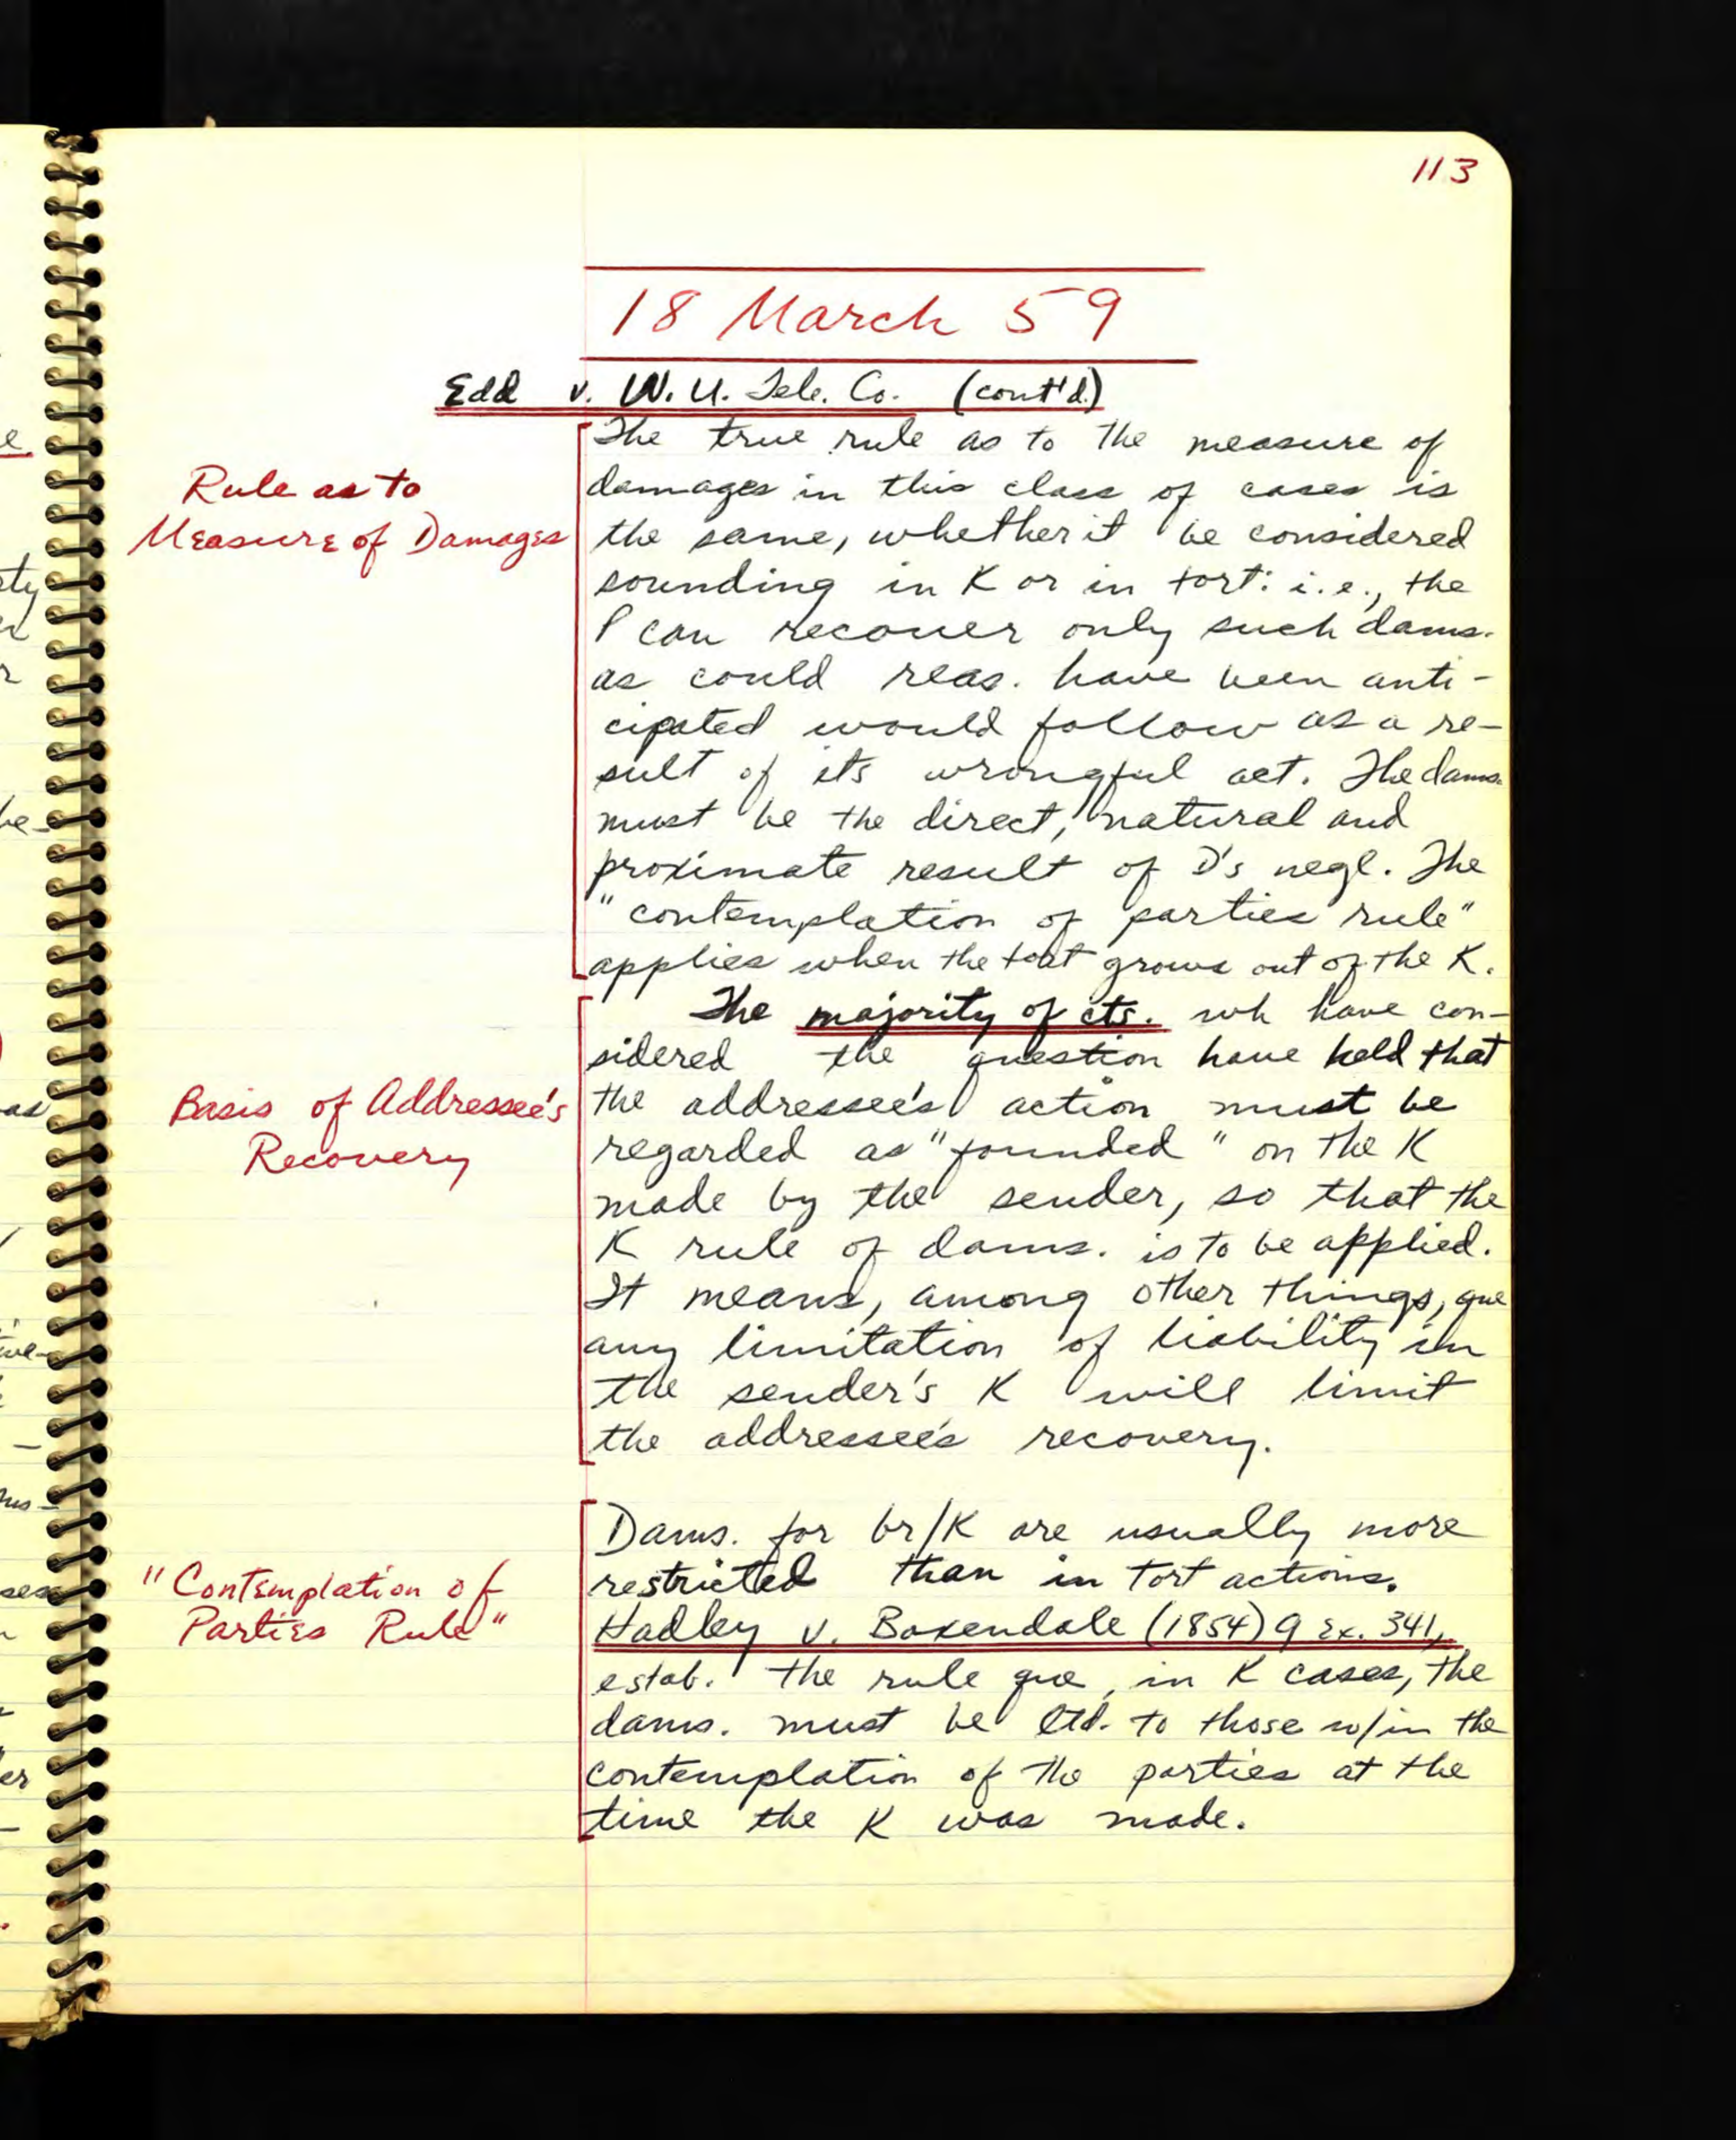 113
18 March 59
Edd v. W. U. Tele. Co. (cont'd.)
Rule as to
Measure of Damages
The true rule as to the measure of
damages in this class of cases is
the same, whether it be considered
sounding in K or in tort: i.e., the
P can recover only such dams.
as could reas. have been anti-
cipated would follow as a re-
sult of its wrongful act. The dams.
must be the direct, natural and
proximate result of D's negl. The
"contemplation of parties rule"
applies when the tort grows out of the K.
Basis of Addressee's
Recovery
The majority of cts. wh have con-
sidered the question have held that
the addressee's action must be
regarded as "founded" on the K
made by the sender, so that the
K rule of dams. is to be applied.
It means, among other things, que
any limitation of liability in
the sender's K will limit
the addressee's recovery.
"Contemplation of
Parties Rule"
Dams. for br/K are usually more
restricted than in tort actions.
Hadley v. Baxendale (1854) 9 Ex. 341,
estab. the rule que, in K cases, the
dams. must be ltd. to those w/in the
contemplation of the parties at the
time the K was made.